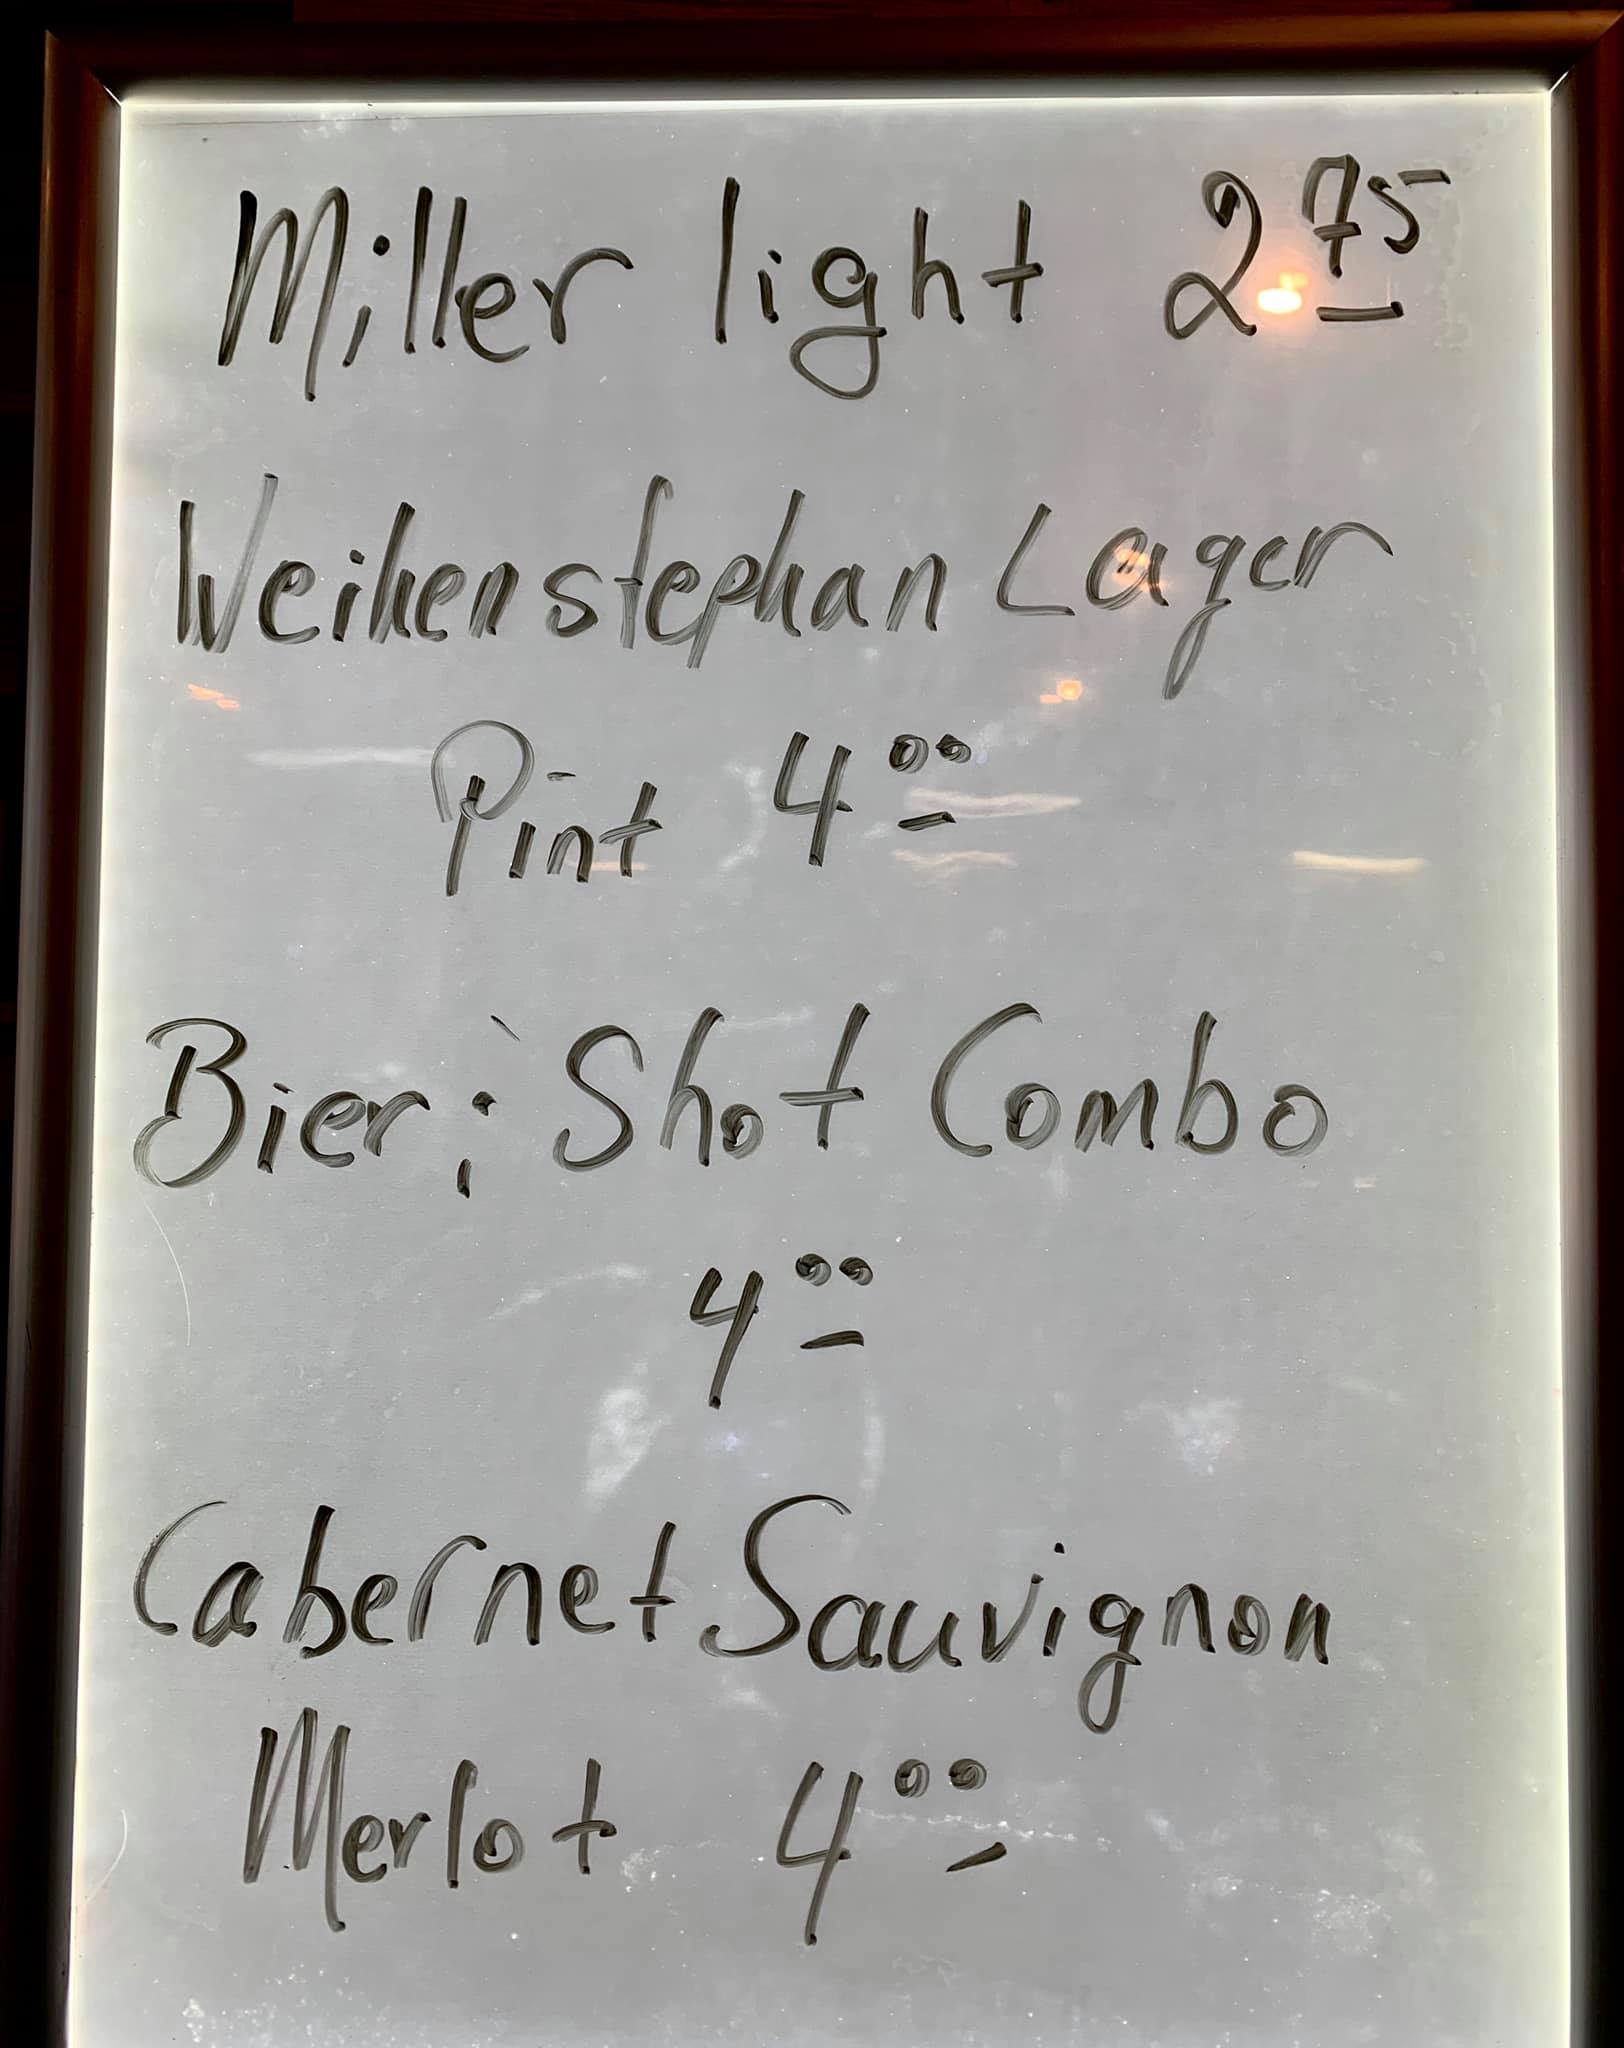 Miller light 2.75
Weihenstephan Lager
Pint 4.00
Bier; Shot Combo
4.00
Cabernet Sauvignon
Merlot 4.00